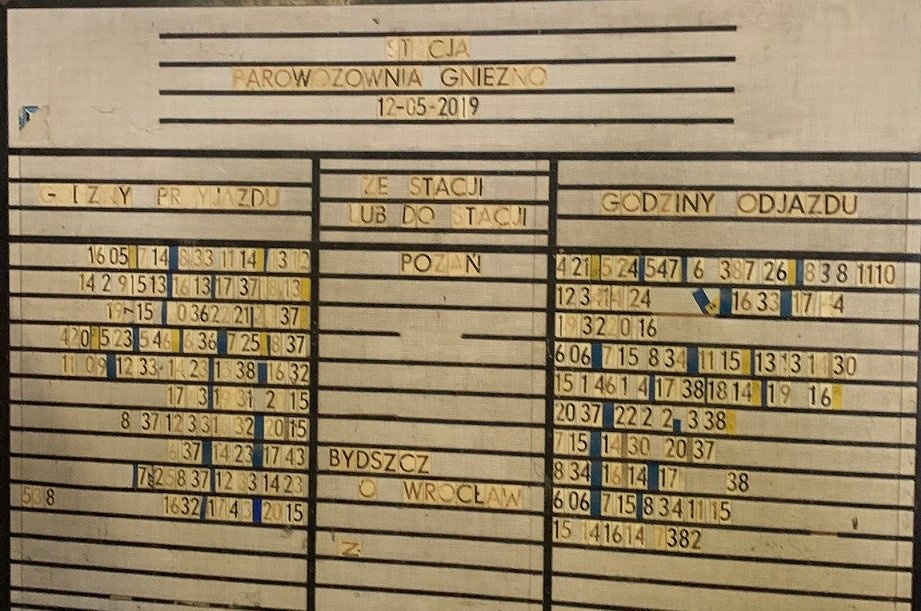 STACJA
PAROWOZOWNIA GNIEZNO
12-05-2019
ZE STACJI
LUB DO STACJI
GODZINY ODJAZDU
16 05 7 14 8 33 11 14
POZ AN
4 21 5 24 547 6 387 26 838 1110
14 2 9 1513 16 13 17 37 13
123 24 16 33 17 4
19 15 0 36 2 21 37
19 32 20 16
420 523 546 636 725 837
6 06 7 15 8 34 11 15 13 13 14 30
11 09 12 33 14 23 15 38 16 32
15 1461 4 17 38 18 14 19 16
17 3 19 31 2 15
20 37 22 2 2 338
8 37 12 3 31 32 20 15
7 15 14 30 20 37
6 37 14 23 17 43
BYDSZCZ
8 34 16 14 17 38
7 25 8 37 12 33 14 23
O WROCŁAW
6 06 7 15 8 34 11 15
538 1632 17 43 20 15
15 1416 14 7 382
Z